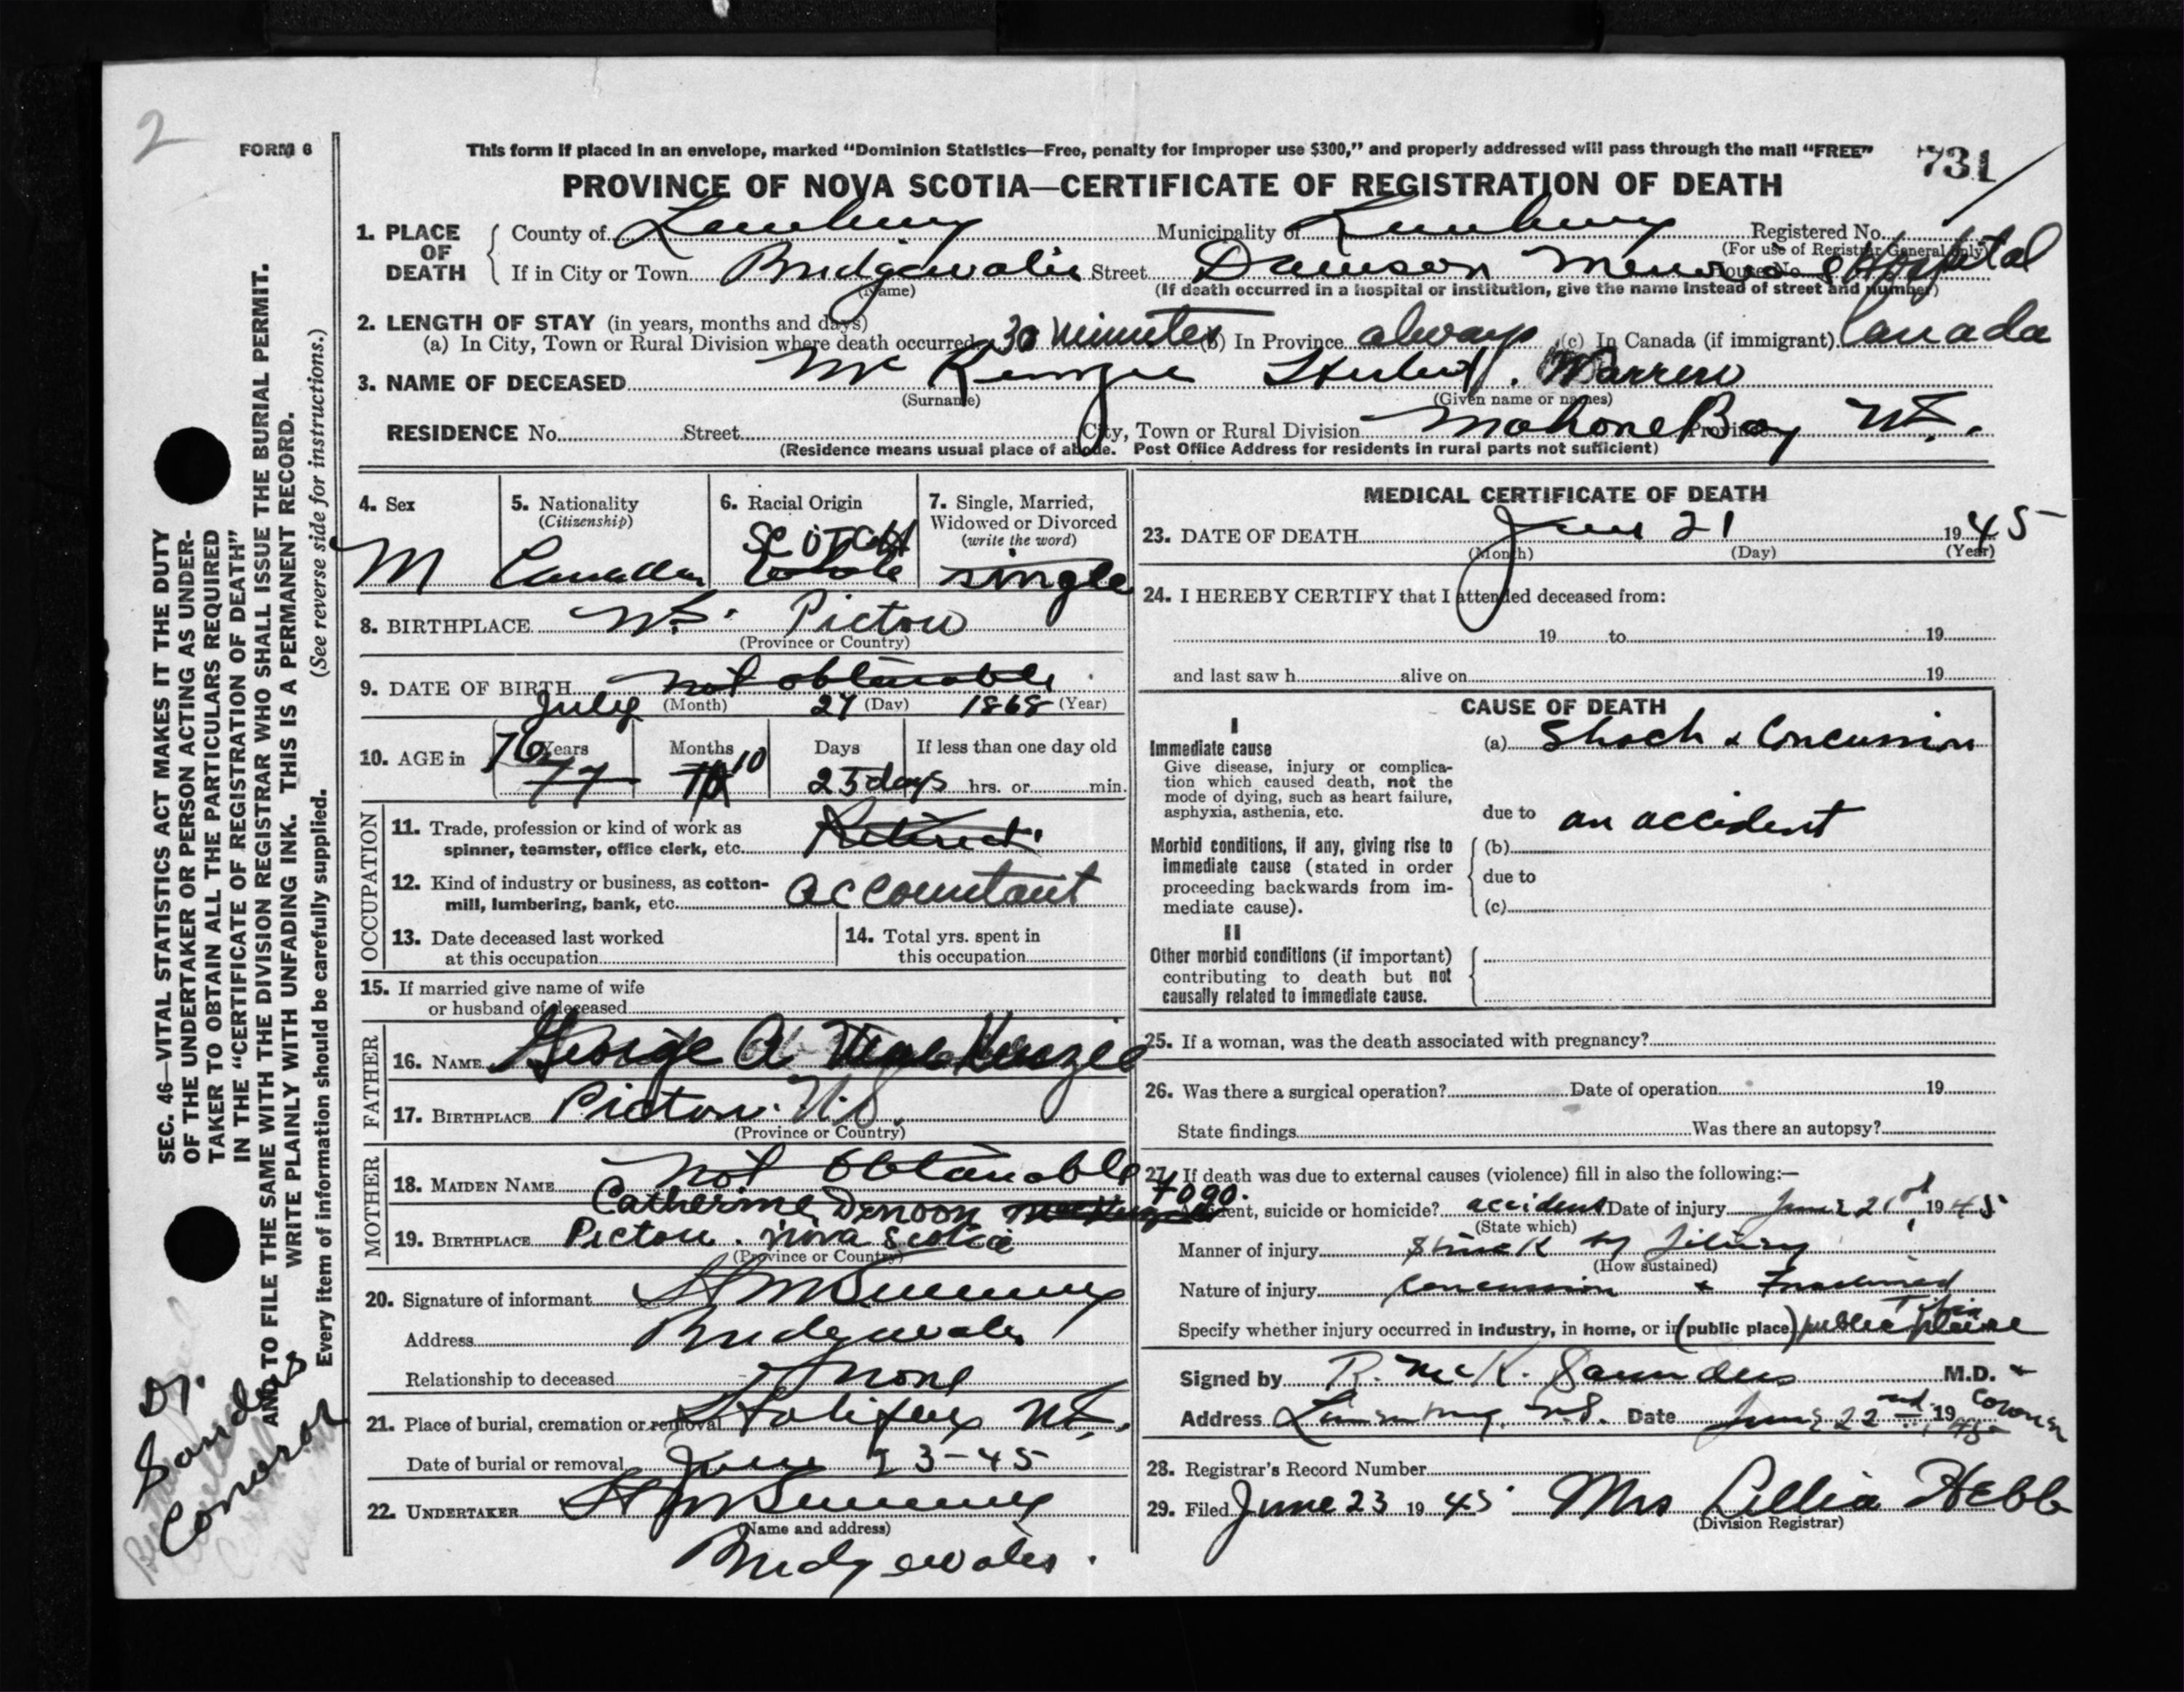 2
FORM 6
This form if placed in an envelope, marked "Dominion Statistics—Free, penalty for improper use $300," and properly addressed will pass through the mail "FREE"
731
PROVINCE OF NOVA SCOTIA—CERTIFICATE OF REGISTRATION OF DEATH
1. PLACE OF DEATH
County of Lunenburg Municipality of Lunenburg Registered No.
(For use of Registrar General only)
If in City or Town Bridgewater Street Dawson Memorial Hospital House No.
(Name) (If death occurred in a hospital or institution, give the name instead of street and number)
2. LENGTH OF STAY (in years, months and days)
(a) In City, Town or Rural Division where death occurred 30 minutes (b) In Province always (c) In Canada (if immigrant) Canada
3. NAME OF DECEASED McKenzie Herbert. Warren
(Surname) (Given name or names)
RESIDENCE No. Street City, Town or Rural Division Mahone Bay Province N.S.
(Residence means usual place of abode. Post Office Address for residents in rural parts not sufficient)
4. Sex M
5. Nationality
(Citizenship)
Canadian
6. Racial Origin
SCOTCH
7. Single, Married, Widowed or Divorced
(write the word)
single
8. BIRTHPLACE N.S. Pictou
(Province or Country)
9. DATE OF BIRTH not obtainable
July (Month) 27 (Day) 1868 (Year)
10. AGE in 76 Years 77 Months 10 Days 25 days If less than one day old hrs. or min.
OCCUPATION
11. Trade, profession or kind of work as spinner, teamster, office clerk, etc. Retired
12. Kind of industry or business, as cotton-mill, lumbering, bank, etc. accountant
13. Date deceased last worked at this occupation
14. Total yrs. spent in this occupation
15. If married give name of wife or husband of deceased
FATHER
16. NAME George A MacKenzie
17. BIRTHPLACE Pictou. N.S.
(Province or Country)
MOTHER
18. MAIDEN NAME not obtainable
Catherine Denoon MacKenzie Fogo.
19. BIRTHPLACE Pictou. Nova Scotia
(Province or Country)
20. Signature of informant
Address Bridgewater
Relationship to deceased none
21. Place of burial, cremation or removal Halifax N.S.
Date of burial or removal June 23-45
22. UNDERTAKER
(Name and address)
Bridgewater.
MEDICAL CERTIFICATE OF DEATH
23. DATE OF DEATH June 21 1945
(Month) (Day) (Year)
24. I HEREBY CERTIFY that I attended deceased from:
19 to 19
and last saw h alive on 19
CAUSE OF DEATH
I
Immediate cause
Give disease, injury or complication which caused death, not the mode of dying, such as heart failure, asphyxia, asthenia, etc.
(a) Shock & Concussion
due to an accident
Morbid conditions, if any, giving rise to immediate cause (stated in order proceeding backwards from immediate cause).
(b)
due to
(c)
II
Other morbid conditions (if important) contributing to death but not causally related to immediate cause.
25. If a woman, was the death associated with pregnancy?
26. Was there a surgical operation? Date of operation 19
State findings Was there an autopsy?
27. If death was due to external causes (violence) fill in also the following:—
Accident, suicide or homicide? accident Date of injury June 21st 1945
(State which)
Manner of injury struck by
(How sustained)
Nature of injury concussion & Fractured Tibia
Specify whether injury occurred in industry, in home, or in (public place) public place
Signed by R. McK. Saunders M.D. & Coroner
Address Lunenburg, N.S. Date June 22nd 1945
28. Registrar's Record Number
29. Filed June 23 1945 Mrs Lillia Hebb
(Division Registrar)
SEC. 46—VITAL STATISTICS ACT MAKES IT THE DUTY
OF THE UNDERTAKER OR PERSON ACTING AS UNDER-
TAKER TO OBTAIN ALL THE PARTICULARS REQUIRED
IN THE "CERTIFICATE OF REGISTRATION OF DEATH"
AND TO FILE THE SAME WITH THE DIVISION REGISTRAR WHO SHALL ISSUE THE BURIAL PERMIT.
WRITE PLAINLY WITH UNFADING INK. THIS IS A PERMANENT RECORD.
Every item of information should be carefully supplied. (See reverse side for instructions.)
Dr.
Conoror